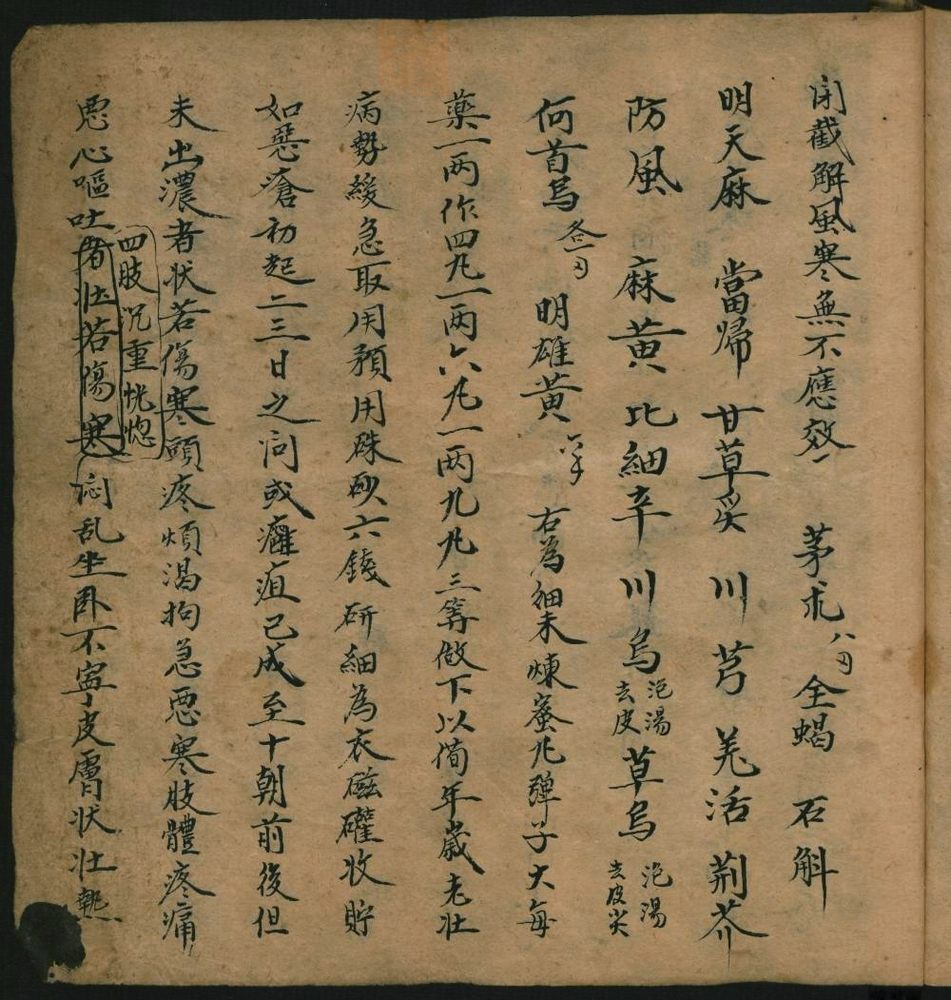 閉截解風寒無不應效 茅朮八刄全蝎 石斛
明天麻 當歸 甘草炙 川芎 羌活 荆芥
防風 麻黄 比細辛 川烏泡湯去皮草烏泡湯去皮尖
何首烏各一刄 明雄黄六千 右為細末煉蜜凡彈子大每
藥一两作四凡一两六凡一两九凡三等做下以俻年歲老壮
病勢緩急取用預用硃砂六錢研細為衣磁礶收貯
如惡瘡初起二三日之间或癰疽已成至十朝前後但
未出濃者状若傷寒頭疼煩渴拘急惡寒肢體疼痛
惡心嘔吐四肢沉重恍惚者壮若傷寒闷乱坐卧不寧皮膚状壮熱